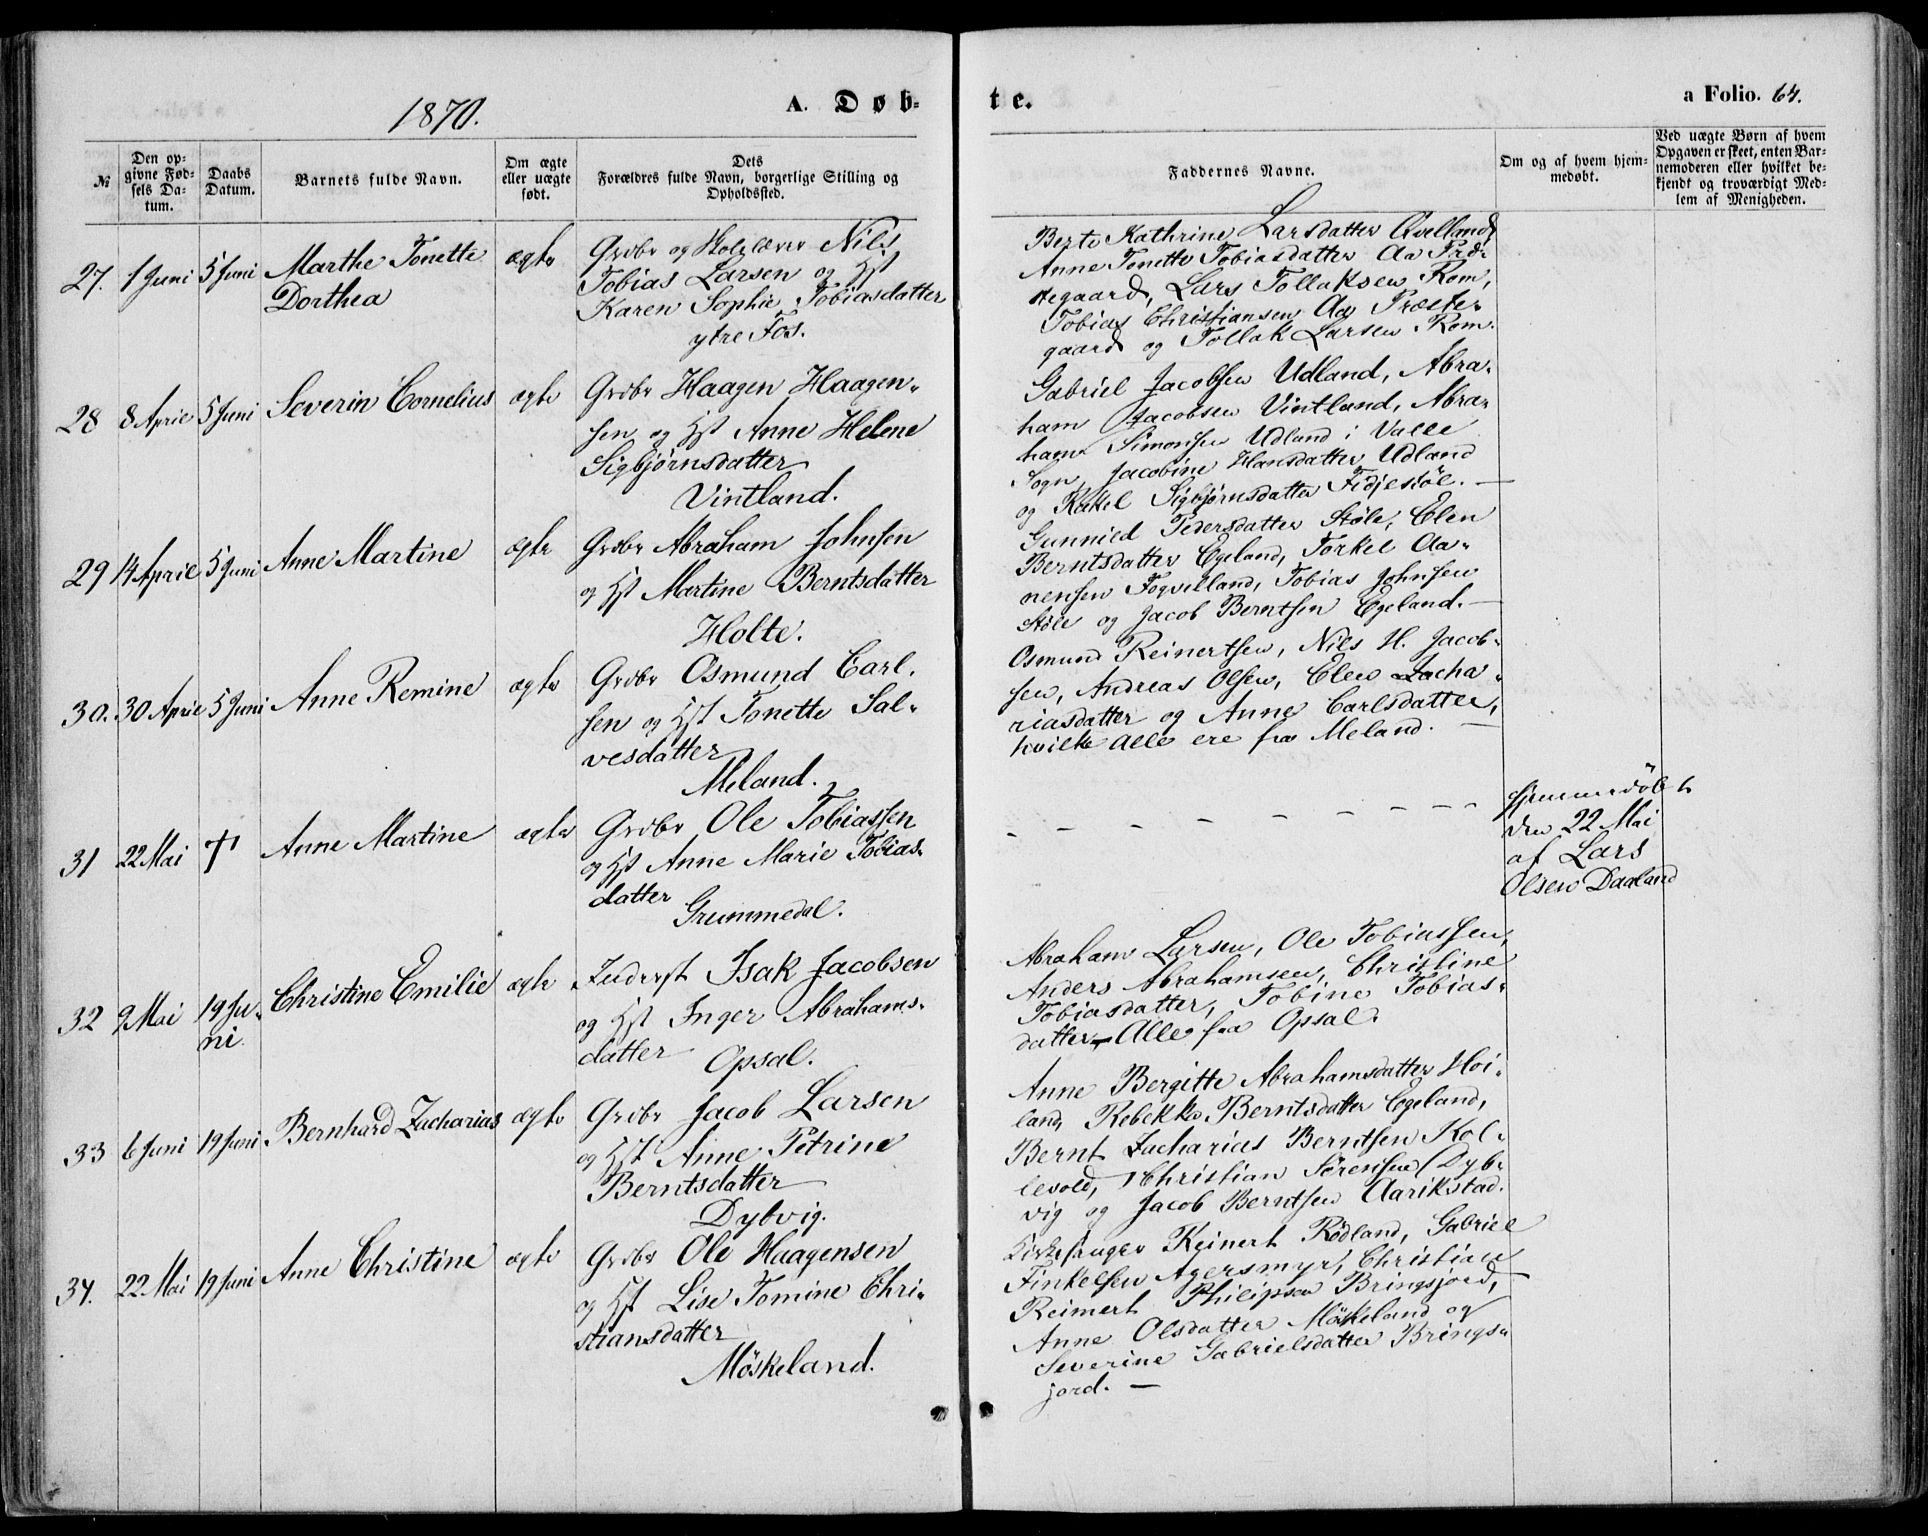 1870.
A. Døb-
te.
a Folio. 64.
№
Den op-
givne Fød-
sels Da-
tum.
Daabs
Datum.
Barnets fulde Navn.
Om ægte
eller uægte
født.
Dets
Forældres fulde Navn, borgerlige Stilling og
Opholdssted.
Faddernes Navne.
Om og af hvem hjem-
medøbt.
Ved uægte Børn af hvem
Opgaven er skeet, enten Bar-
nemoderen eller hvilket be-
kjendt og troværdigt Med-
lem af Menigheden.
27. 1 Juni 5 Juni
Marthe Tonette
Dorthea
ægte
Grdbr og Skolelærer Nils
Tobias Larsen og Hst
Karen Sophie Tobiasdatter
ytre Fos.
Berte Kathrine Larsdatter Qvelland
Anne Tonette Tobiasdatter Aa Præ-
stegaard, Lars Tollaksen Rom,
Tobias Christiansen Aa Præste-
gaard og Tollak Larsen Rom.
28 8 April 5 Juni
Severin Cornelius
ægte
Grdbr Haagen Haagen-
sen og Hst Anne Helene
Sigbjørnsdatter
Vintland.
Gabriel Jacobsen Udland, Abra-
ham Jacobsen Vintland, Abra-
ham Simonsen Udland i Valle
Sogn, Jacobine Hansdatter Udland
og Rakel Sigbjørnsdatter Fidjestöl. —
29 14 April 5 Juni
Anne Martine
ægte
Grdbr Abraham Johnsen
og Hst Martine Berntsdatter
Holte.
Gunnild Pedersdatter Støle, Elen
Berntsdatter Egeland, Torkel Aa-
nensen Foqvelland, Tobias Johnsen
Støle og Jacob Berntsen Egeland. —
30. 30 April 5 Juni
Anne Remine
ægte
Grdbr Osmund Carl-
sen og Hst Tonette Sal-
vesdatter
Meland.
Osmund Reinertsen, Nils H. Jacob-
sen, Andreas Olsen, Elen Zacha-
riasdatter og Anne Carlsdatter,
hvilke alle ere fra Meland. —
31 22 Mai †
Anne Martine
ægte
Grdbr Ole Tobiassen
og Hst Anne Marie Tobias-
datter
Grummedal.
– – – – – – – – –
Hjemmedöbt
den 22 Mai
af Lars
Olsen Daaland
32 9 Mai 19 Ju-
ni.
Christine Emilie
ægte
Inderst Isak Jacobsen
og Hst Inger Abrahams-
datter
Opsal.
Abraham Larsen, Ole Tobiassen,
Anders Abrahamsen, Christine
Tobiasdatter, Tobine Tobias-
datter – Alle fra Opsal.
33 6 Juni 19 Juni
Bernhard Zacharias
ægte
Grdbr Jacob Larsen
og Hst Anne Petrine
Berntsdatter
Dybvig.
Anne Bergitte Abrahamsdatter Höi-
land, Rebekka Berntsdatter Egeland,
Bernt Zacharias Berntsen Kol-
levold, Christian Sørensen Dyb-
vig og Jacob Berntsen Aarikstad.
34. 22 Mai 19 Juni
Anne Christine
ægte
Grdbr Ole Haagensen
og Hst Lise Tomine Chri-
stiansdatter
Möskeland.
Kirkesanger Reinert Rödland, Gabriel
Finkelsen Agersmyr, Christian
Reimert Philipsen Bringsjord,
Anne Olsdatter Möskeland og
Severine Gabrielsdatter Brings-
jord. —